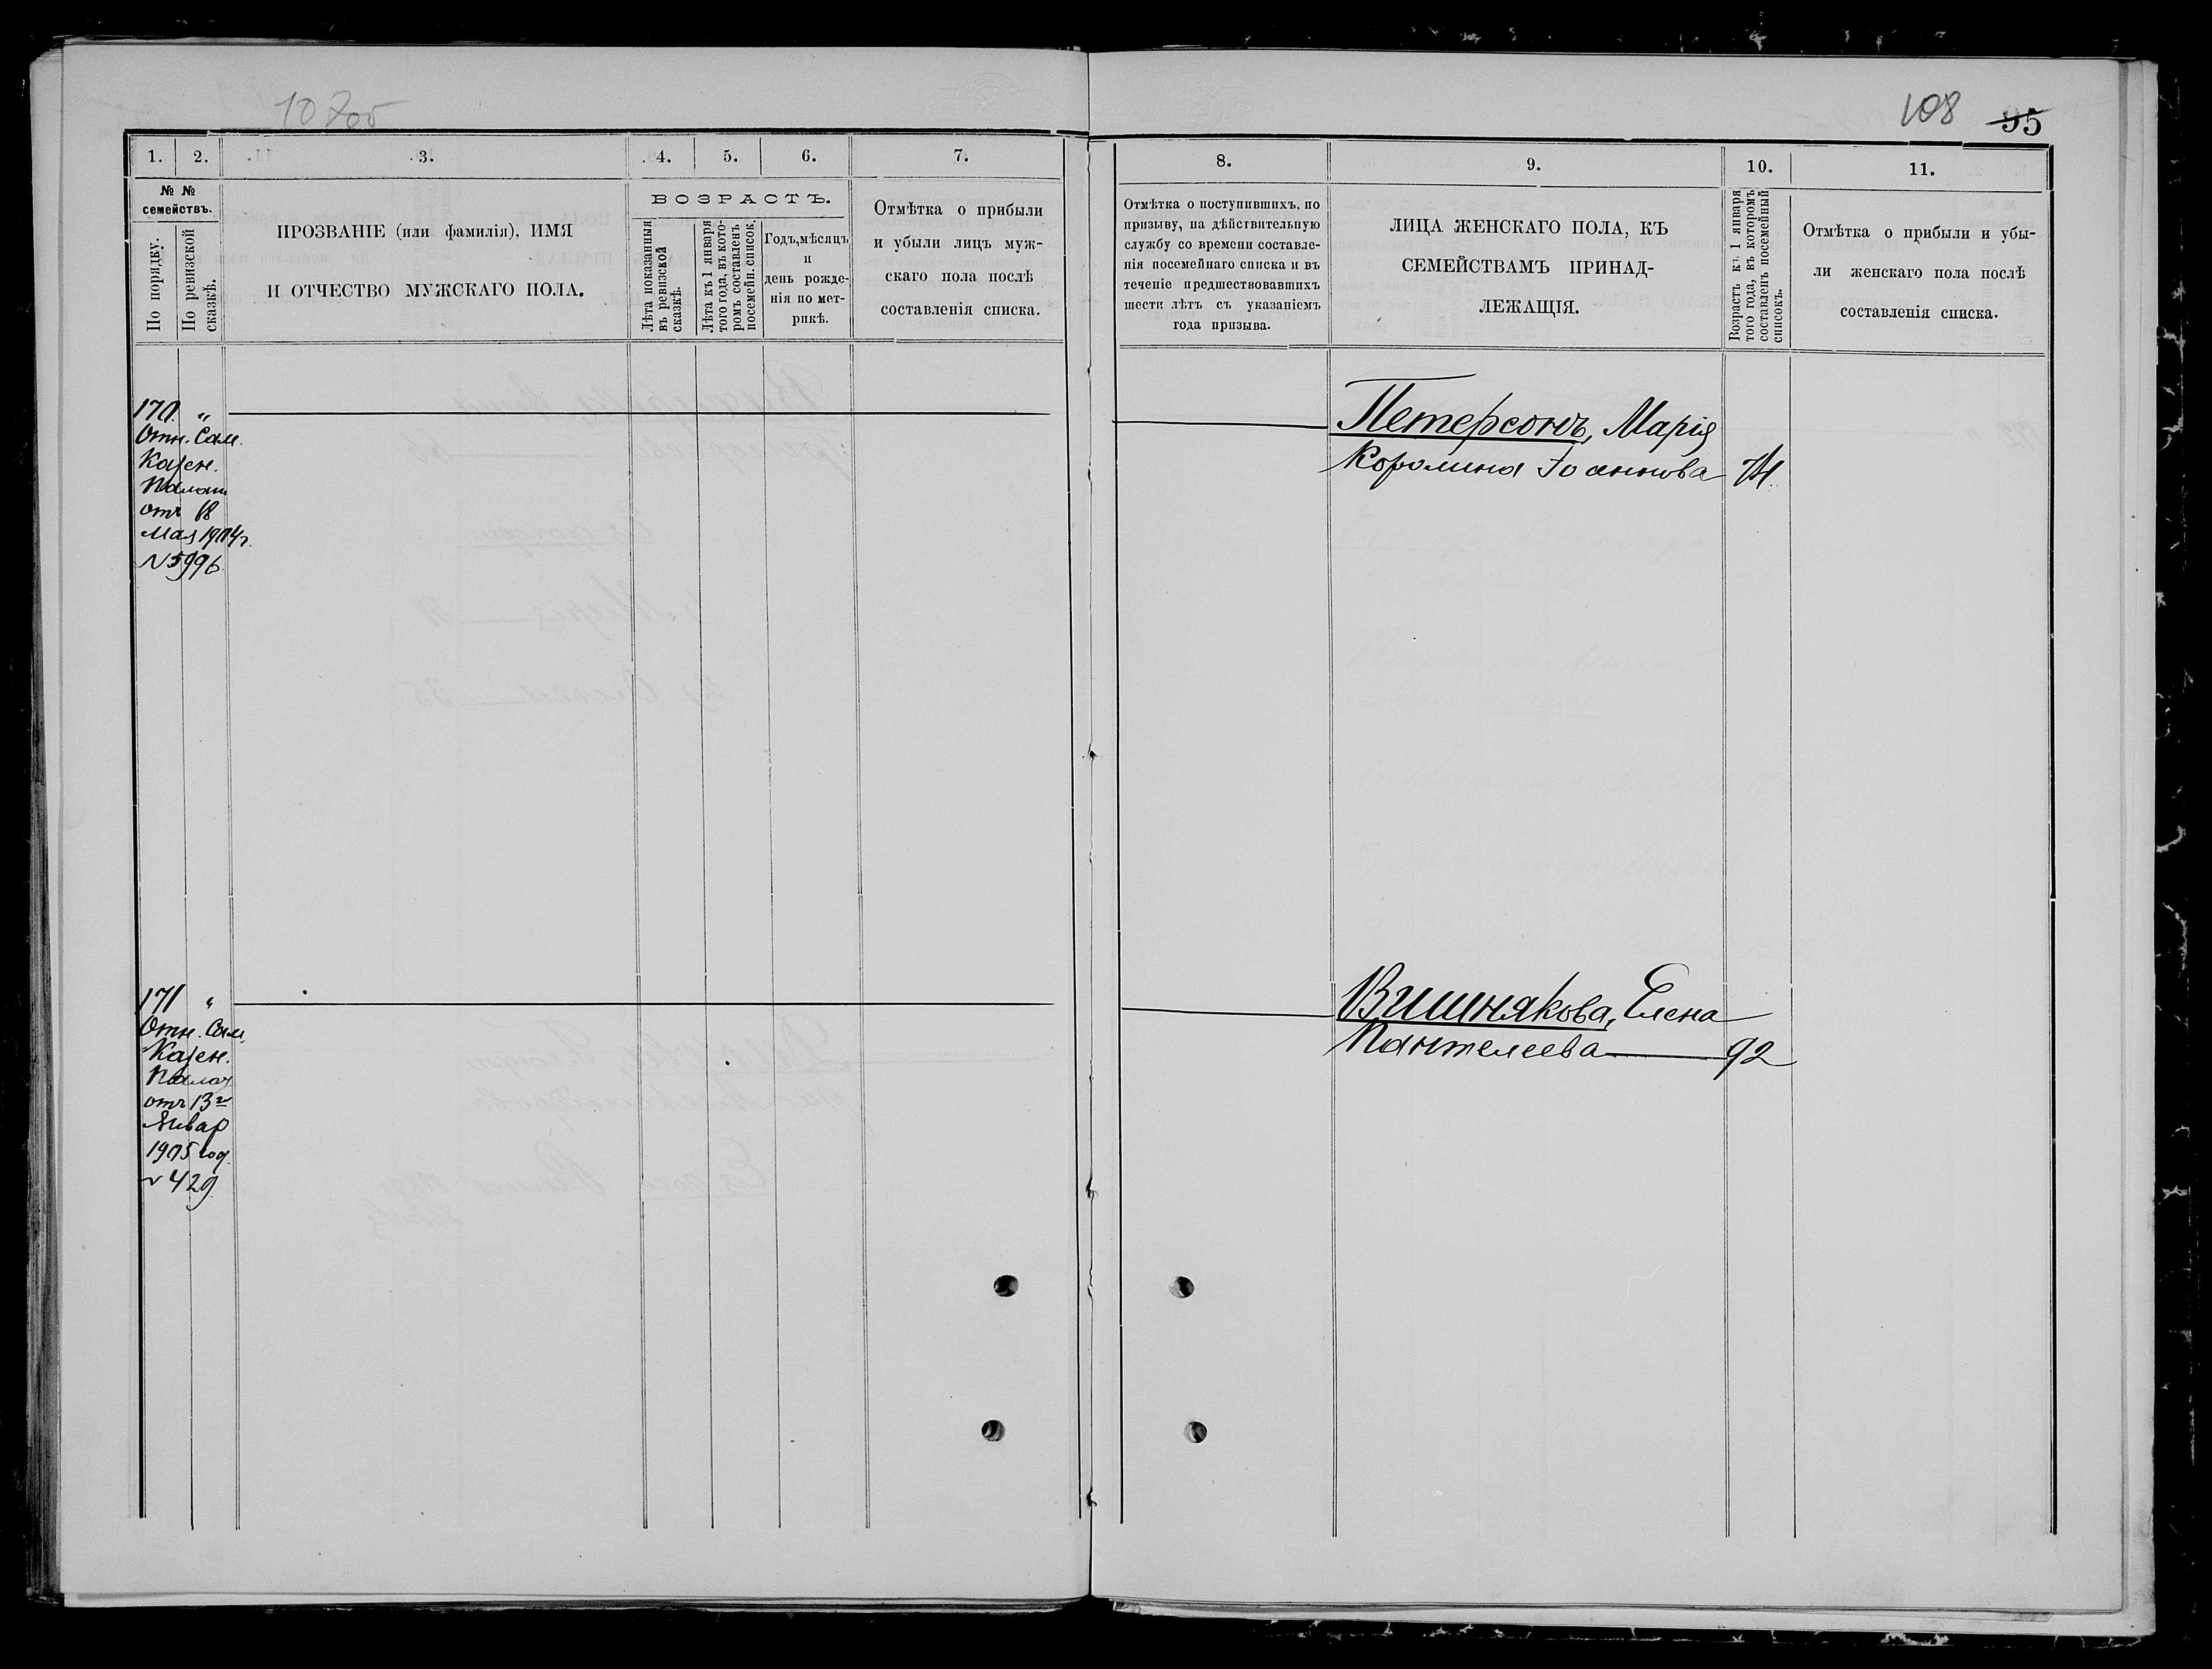 108 95
1. 2. 3. 4. 5. 6. 7.
№ № семействъ.
По порядку.
По ревизской сказкѣ.
ПРОЗВАНІЕ (или фамилія), ИМЯ
И ОТЧЕСТВО МУЖСКАГО ПОЛА.
ВОЗРАСТЪ.
Лѣта показанныя
въ ревизской
сказкѣ.
Лѣта къ 1 января
того года, въ кото-
ромъ составленъ
посемейн. список.
Годъ, мѣсяцъ
и
день рожде-
нія по мет-
рикѣ.
Отмѣтка о прибыли
и убыли лицъ муж-
скаго пола послѣ
составленія списка.
170. "
Отн. Сам.
Казен.
Палат
отъ 18
Мая 1904 г.
№ 5996
171 "
Отн. Сам.
Казен.
Палат
отъ 13 г
Январ
1905 год.
№ 429
8. 9. 10. 11.
Отмѣтка о поступившихъ, по
призыву, на дѣйствительную
службу со времени составле-
нія посемейнаго списка и въ
теченіе предшествовавшихъ
шести лѣтъ съ указаніемъ
года призыва.
ЛИЦА ЖЕНСКАГО ПОЛА, КЪ
СЕМЕЙСТВАМЪ ПРИНАД-
ЛЕЖАЩІЯ.
Возрастъ къ 1 января
того года, въ которомъ
составленъ посемейный
списокъ.
Отмѣтка о прибыли и убы-
ли женскаго пола послѣ
составленія списка.
Петерсонъ, Марія
Королина Іоаннова
Вишнякова, Елена
Пантелеева 92